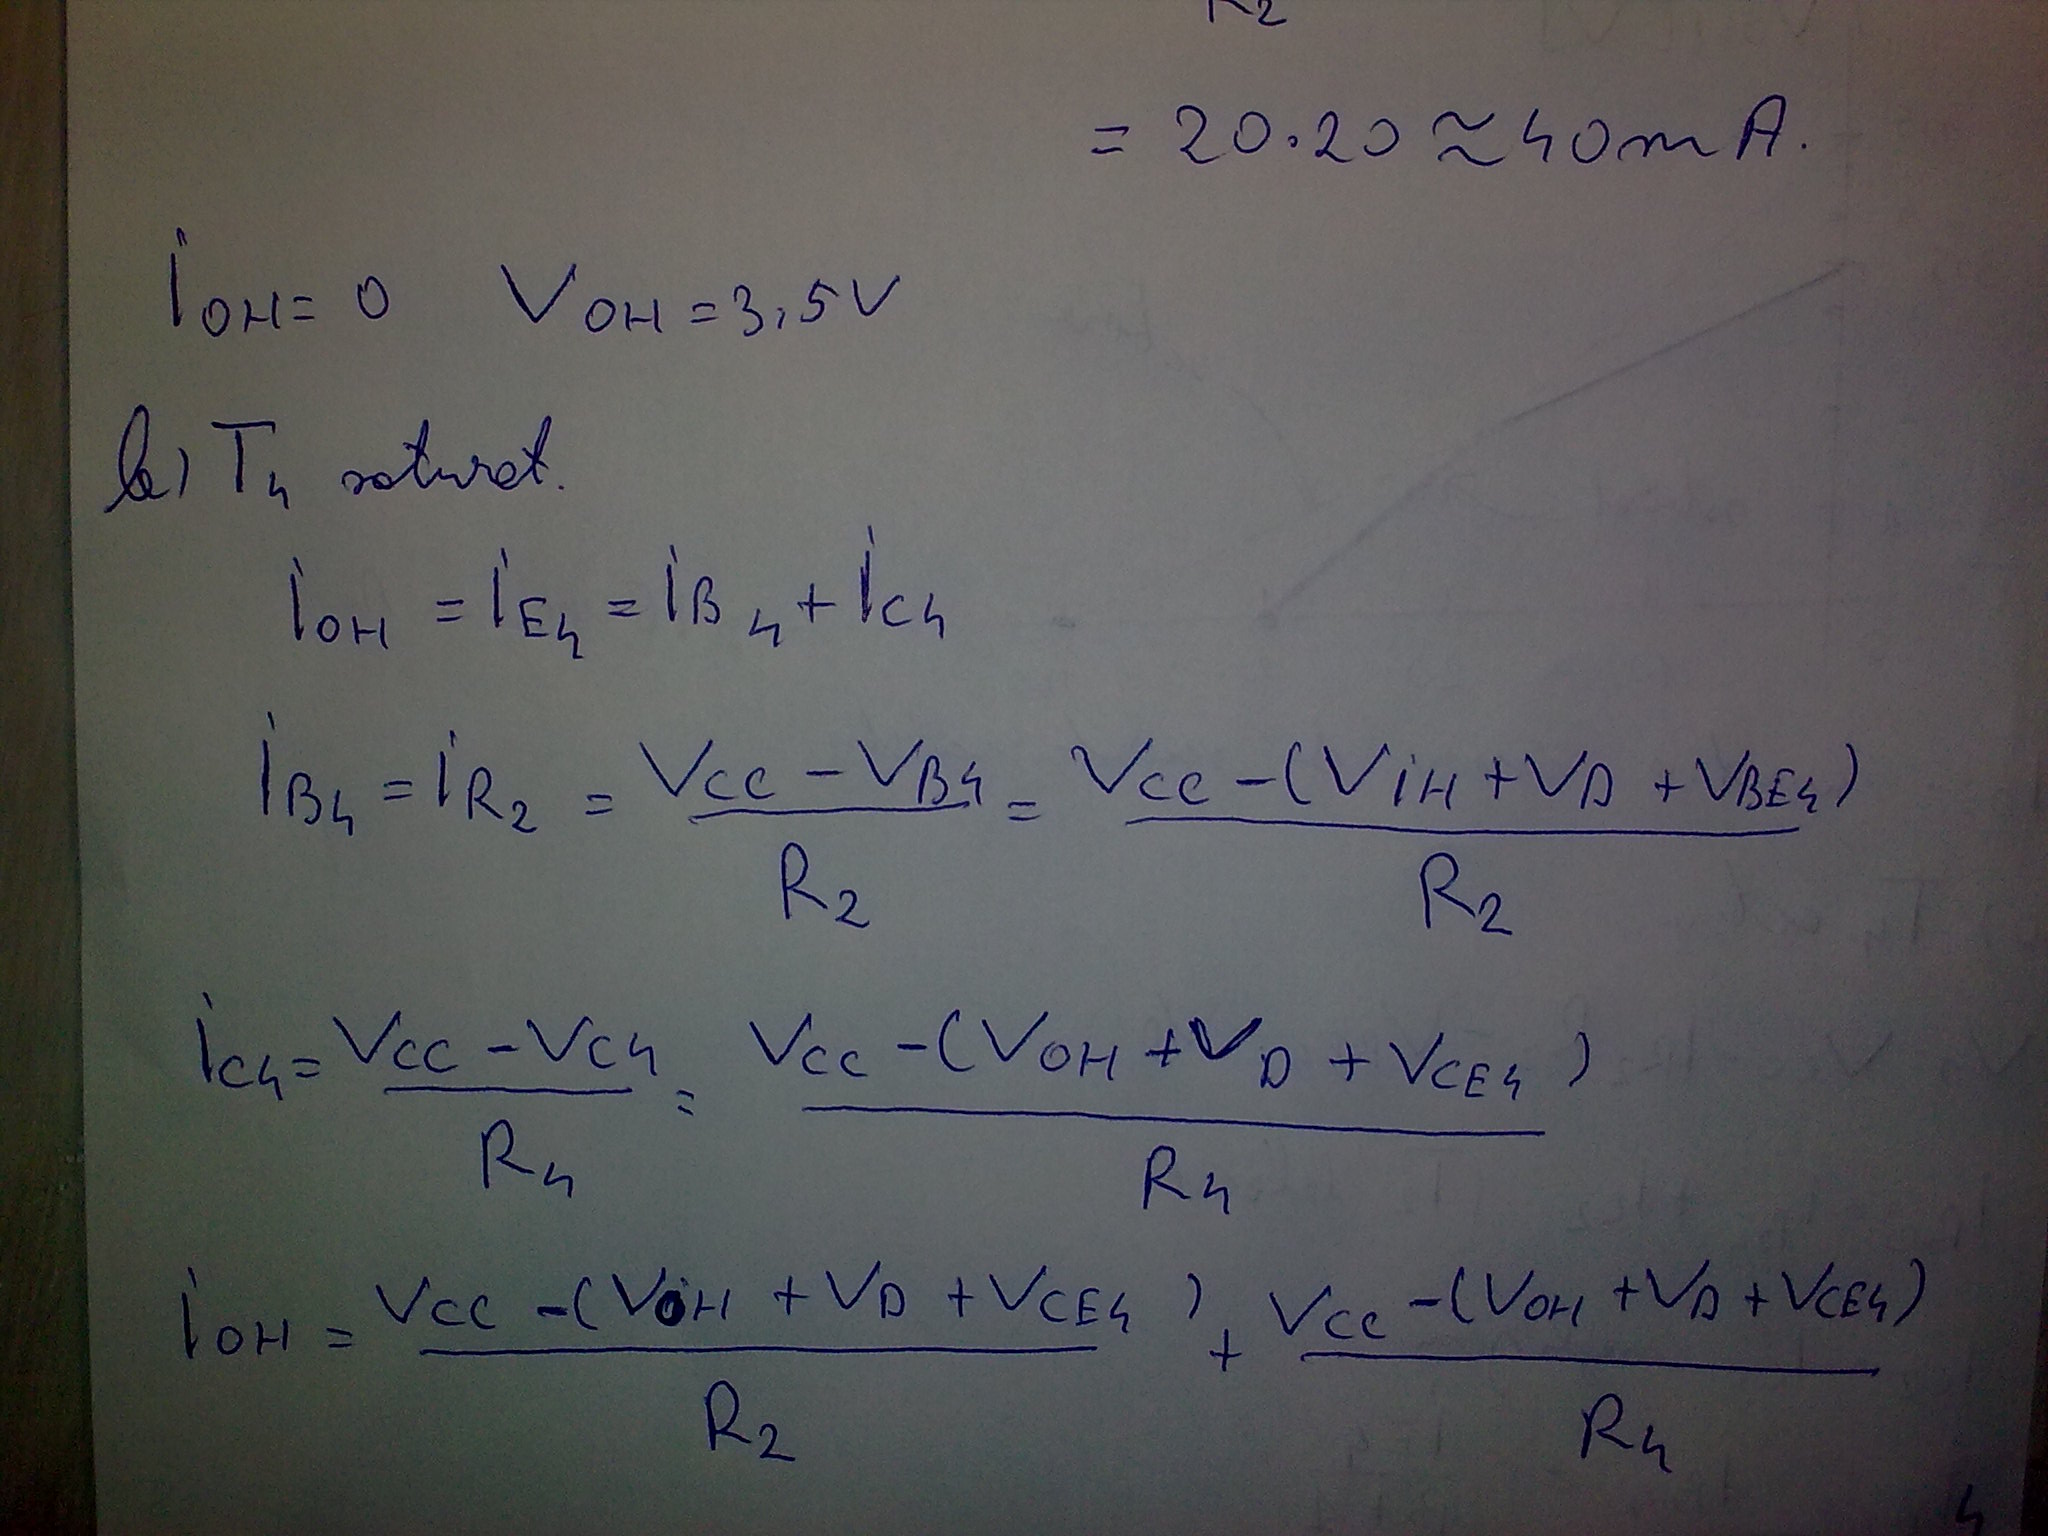 R2
= 20.20 ≈ 40mA.
iOH = 0 VOH = 3,5V
b) T4 saturat.
iOH = iE4 = iB4 + iC4
iB4 = iR2 = (VCC - VB4)/R2 = (VCC - (ViH + VD + VBE4))/R2
iC4 = (VCC - VC4)/R4 = (VCC - (VOH + VD + VCE4))/R4
iOH = (VCC - (VOH + VD + VCE4))/R2 + (VCC - (VOH + VD + VCE4))/R4